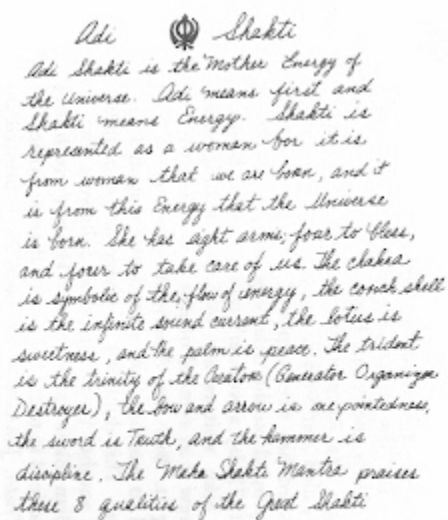 Adi Shakti
Adi Shakti is the Mother Energy of
the Universe. Adi means first and
Shakti means Energy. Shakti is
represented as a woman for it is
from woman that we are born, and it
is from this Energy that the Universe
is born. She has eight arms; four to bless,
and four to take care of us. The chakra
is symbolic of the flow of energy, the conch shell
is the infinite sound current, the lotus is
sweetness, and the palm is peace. The trident
is the trinity of the Creator (Generator Organizer
Destroyer), the bow and arrow is one pointedness,
the sword is Truth, and the hammer is
discipline. The Maha Shakti Mantra praises
these 8 qualities of the Great Shakti